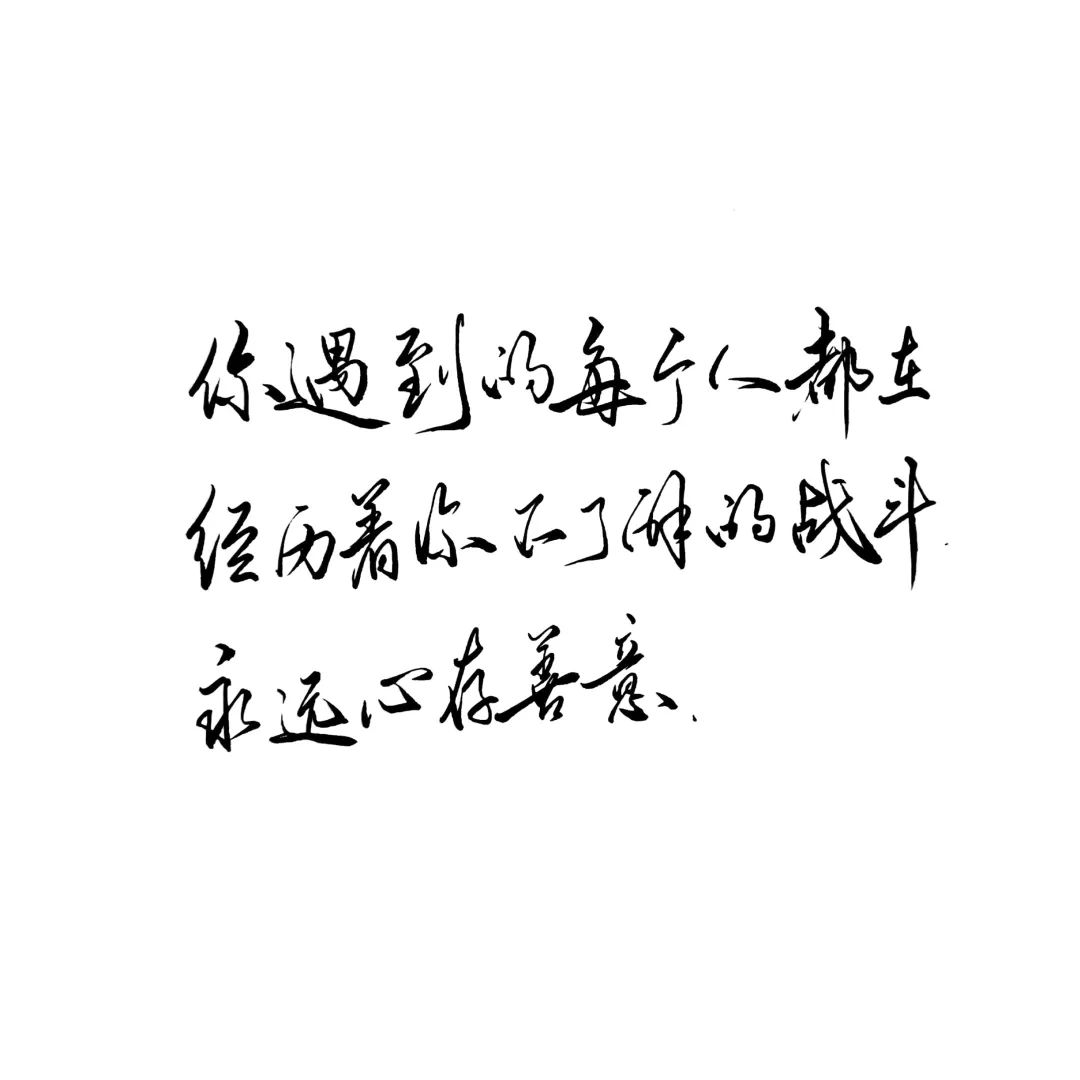 你遇到的每个人都在
经历着你不了解的战斗.
永远心存善意.